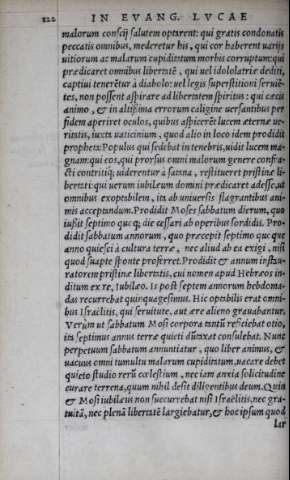 222 IN EVANG. LVCAE
malorum conscij salutem optarent: qui gratis condonatis
peccatis omnibus, mederetur his, qui cor haberent uarijs
uitiorum ac malarum cupiditatum morbis corruptum: qui
prædicaret omnibus libertatē, qui uel idololatriæ dediti,
captiui tenerētur à diabolo: uel legis superstitioni seruiē-
tes, non possent aspirare ad libertatem spiritus: qui cæcis
animo, & in altissima errorum caligine uersantibus per
fidem aperiret oculos, quibus aspicerēt lucem æternæ ue-
ritatis, iuxta uaticinium, quod alio in loco idem prodidit
propheta: Populus qui sedebat in tenebris, uidit lucem ma-
gnam: qui eos, qui prorsus omni malorum genere confra-
cti contritiq; uiderentur à satana, restitueret pristinæ li-
bertati: qui uerum iubileum domini prædicaret adesse, ut
omnibus exoptabilem, ita ab uniuersis flagrantibus ani-
mis accipiendum. Prodidit Moses sabbatum dierum, quo
iussit septimo quoq; die cessari ab operibus sordidis. Pro-
didit sabbatum annorum, quo præcepit septimo quoque
anno quiesci à cultura terræ, nec aliud ab ea exigi, nisi
quod suapte sponte proferret. Prodidit & annum instau-
ratorem pristinæ libertatis, cui nomen apud Hebræos in-
ditum ex re, iubilæo. Is post septem annorum hebdoma-
das recurrebat quinquagesimus. Hic optabilis erat omni-
bus Israëlitis, qui seruitute, aut ære alieno grauabantur.
Verùm ut sabbatum Mosi corpora tantū reficiebat otio,
ita septimus annus terræ quieti dūtaxat consulebat. Nunc
perpetuum sabbatum annuntiatur, quo liber animus, &
uacuus omni tumultu malarum cupiditatum, uacare debet
quieto studio rerū cælestium, nec iam anxia solicitudine
curare terrena, quum nihil desit diligentibus deum. Quin
& Mosi iubilæus non succurrebat nisi Israëlitis, nec gra-
tuitā, nec plenā libertatē largiebatur, & hoc ipsum quod
lar